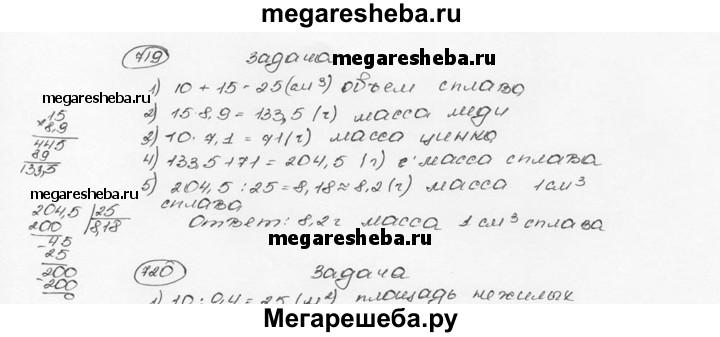 megaresheba.ru
719 задача
1) 10 + 15 = 25 (см³) объем сплава
megaresheba.ru
2) 15·8,9 = 133,5 (г) масса меди
3) 10·7,1 = 71 (г) масса цинка
4) 133,5 + 71 = 204,5 (г) масса сплава
5) 204,5 : 25 = 8,18 ≈ 8,2 (г) масса 1 см³
сплава
Ответ: 8,2 г масса 1 см³ сплава
15
× 8,9
445
89
133,5
megaresheba.ru
204,5 | 25
200 8,18
- 45
25
200
- 200
0
megaresheba.ru
720 задача
1) 10 : 0,4 = 25 (м²) площадь нежилых
Мегарешеба.ру